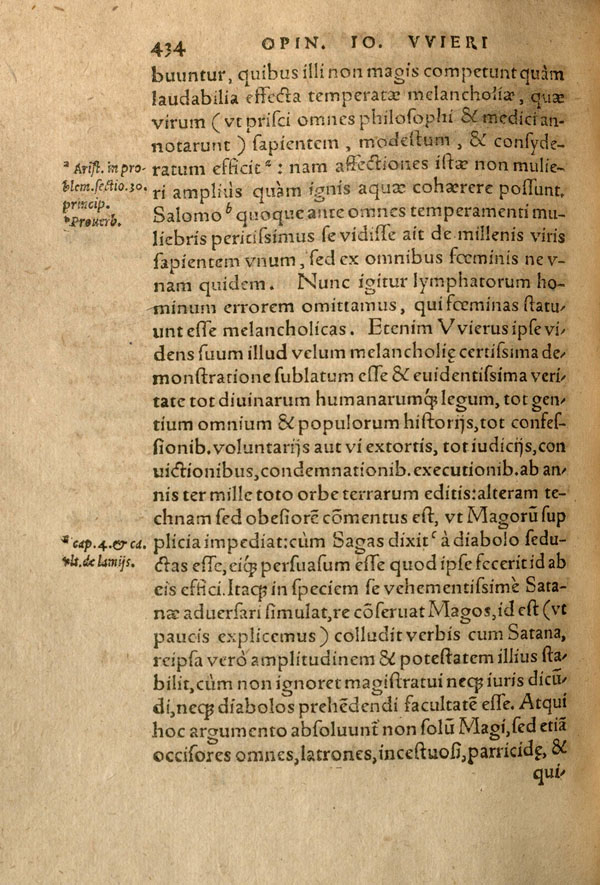 434 OPIN. IO. VVIERI
buuntur, quibus illi non magis competunt quàm
laudabilia effecta temperatæ melancholiæ, quæ
virum (vt prisci omnes philosophi & medici an-
notarunt) sapientem, modestum, & consyde-
ratum efficitª: nam affectiones istæ non mulie-
ri amplius quàm ignis aquæ cohærere possunt.
Salomo ᵇ quoque ante omnes temperamenti mu-
liebris peritissimus se vidisse ait de millenis viris
sapientem vnum, sed ex omnibus fœminis ne v-
nam quidem. Nunc igitur lymphatorum ho-
minum errorem omittamus, qui fœminas statu-
unt esse melancholicas. Etenim Vvierus ipse vi-
dens suum illud velum melancholię certissima de-
monstratione sublatum esse & euidentissima veri-
tate tot diuinarum humanarumq́; legum, tot gen-
tium omnium & populorum historijs, tot confes-
sionib. voluntarijs aut vi extortis, tot iudicijs, con
uictionibus, condemnationib. executionib. ab an-
nis ter mille toto orbe terrarum editis: alteram te-
chnam sed obesiorē cōmentus est, vt Magorū sup
plicia impediat: cùm Sagas dixit ᶜ à diabolo sedu-
ctas esse, eiq́; persuasum esse quod ipse fecerit id ab
eis effici. Itaq; in speciem se vehementissimè Sata-
næ aduersari simulat, re cōseruat Magos, id est (vt
paucis explicemus) colludit verbis cum Satana,
reipsa verò amplitudinem & potestatem illius sta-
bilit, cùm non ignoret magistratui neq; iuris dicū-
di, neq; diabolos prehēdendi facultatē esse. Atqui
hoc argumento absoluunt̄ non solū Magi, sed etiā
occisores omnes, latrones, incestuosi, parricidę, &
qui-
ª Arist. in pro-
blem. sectio. 30.
princip.
ᵇ Prouerb.
cap. 4. & ca.
de lamijs.